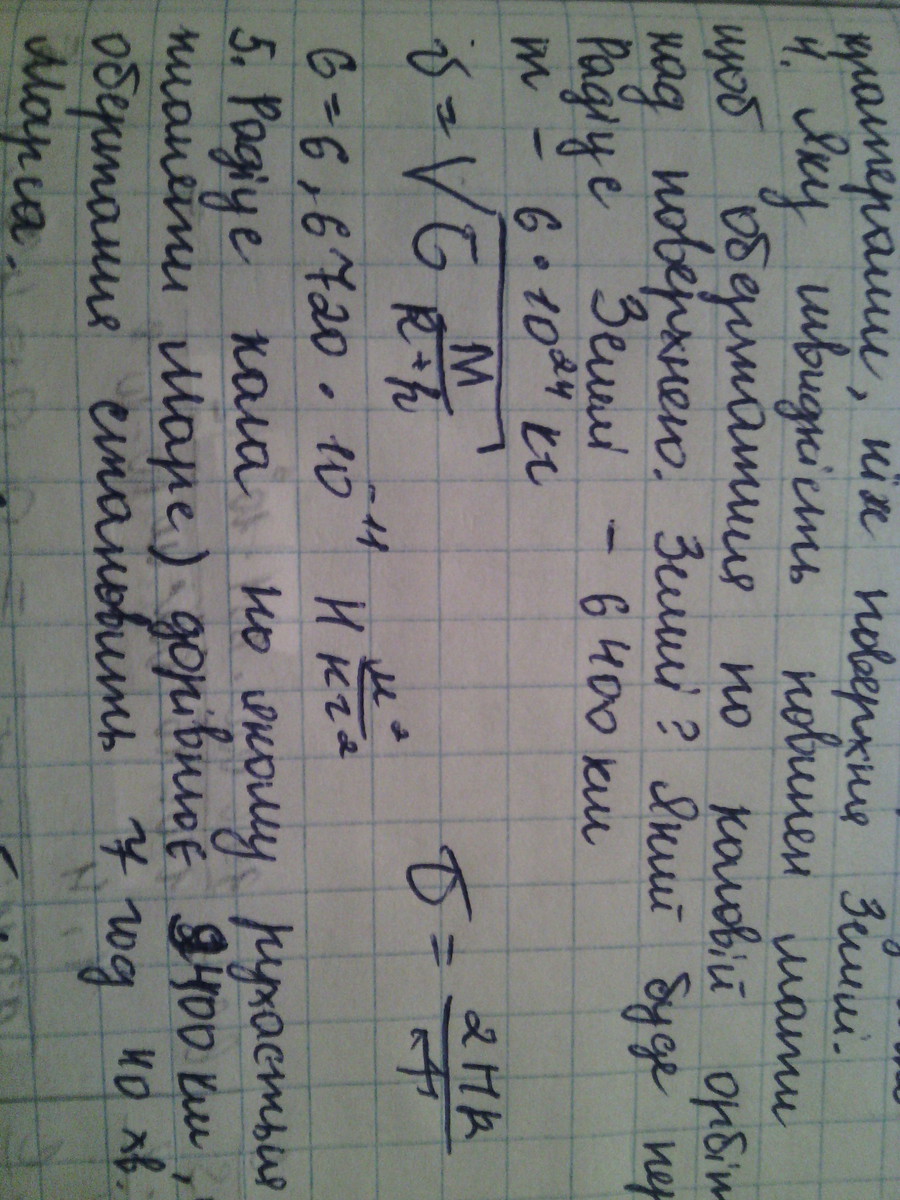 кратерами, ніж поверхня Землі.
4. Яку швидкість повинен мати
щоб обертатися по коловій орбіт
над поверхнею. Землі? Який буде пер
Радіус Землі - 6400 км
m - 6 · 10²⁴ кг
v = √G M/R+h v = 2ПR/T
G = 6,6720 · 10⁻¹¹ Н м²/кг²
5. Радіус кола по якому рухається
планети Марс) дорівнює 9400 км,
обертання становить 7 год 40 хв.
Марса.